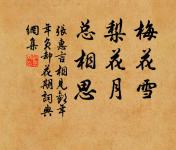 梅花雪
梨花月
总相思
张惠言相见欢年
年负却花期词典
网集